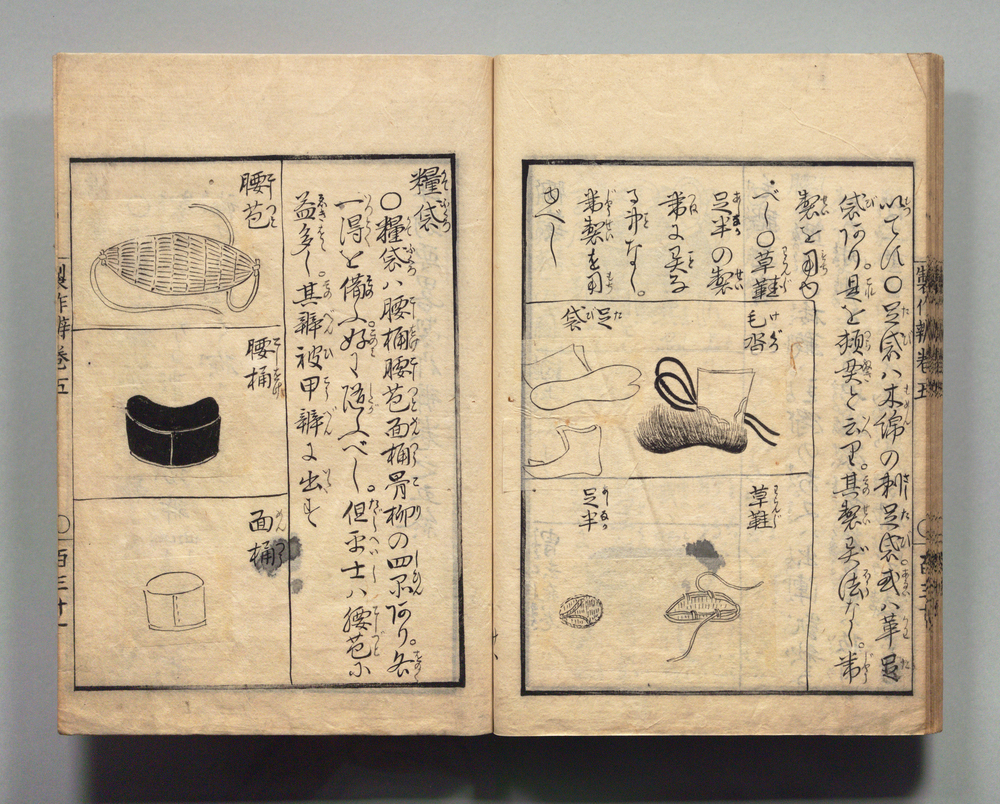 以てス〇足袋ハ木綿の刺足袋或ハ革足
袋あり。是を頬貫と云り。其製異法なし。常
製を用ゆ
べし〇草鞋
足半の製
常に異る
る事なし。
常製を用
ゆべし
毛沓
足袋
草鞋
足半
製作辨巻五
糧袋
〇糧袋ハ腰桶腰苞面桶骨柳の四品あり。各
一得を備ふ。好に随ふべし。但平士ハ腰苞に
益多し。其辨被甲辨に出す
腰苞
腰桶
面桶
製作辨巻五
〇百三十一